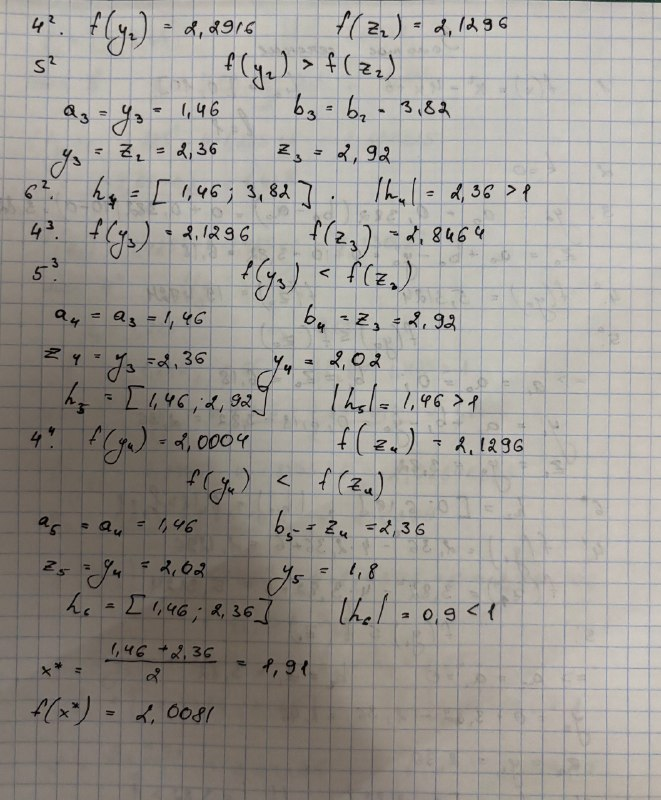 4². f(y₂) = 2,2916 f(z₂) = 2,1296
5² f(y₂) > f(z₂)
a₃ = y₃ = 1,46 b₃ = b₂ - 3,82
y₃ = z₂ = 2,36 z₃ = 2,92
6². h₄ = [1,46; 3,82]. |h₄| = 2,36 > 1
4³. f(y₃) = 2,1296 f(z₃) = 2,8464
5³. f(y₃) < f(z₃)
a₄ = a₃ = 1,46 b₄ = z₃ = 2,92
z₄ = y₃ = 2,36 y₄ = 2,02
h₅ = [1,46; 2,92] |h₅| = 1,46 > 1
4⁴. f(y₄) = 2,0004 f(z₄) = 2,1296
f(y₄) < f(z₄)
a₅ = a₄ = 1,46 b₅ = z₄ = 2,36
z₅ = y₄ = 2,02 y₅ = 1,8
h₆ = [1,46; 2,36] |h₆| = 0,9 < 1
x* = (1,46 + 2,36)/2 = 1,91
f(x*) = 2,0081